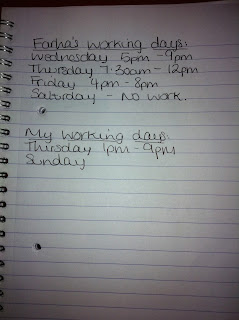 Farha's working days:
Wednesday 5pm - 9pm
Thursday 7:30am - 12pm
Friday 4pm - 8pm
Saturday - No work.
My working days:
Thursday 1pm - 9pm
Sunday